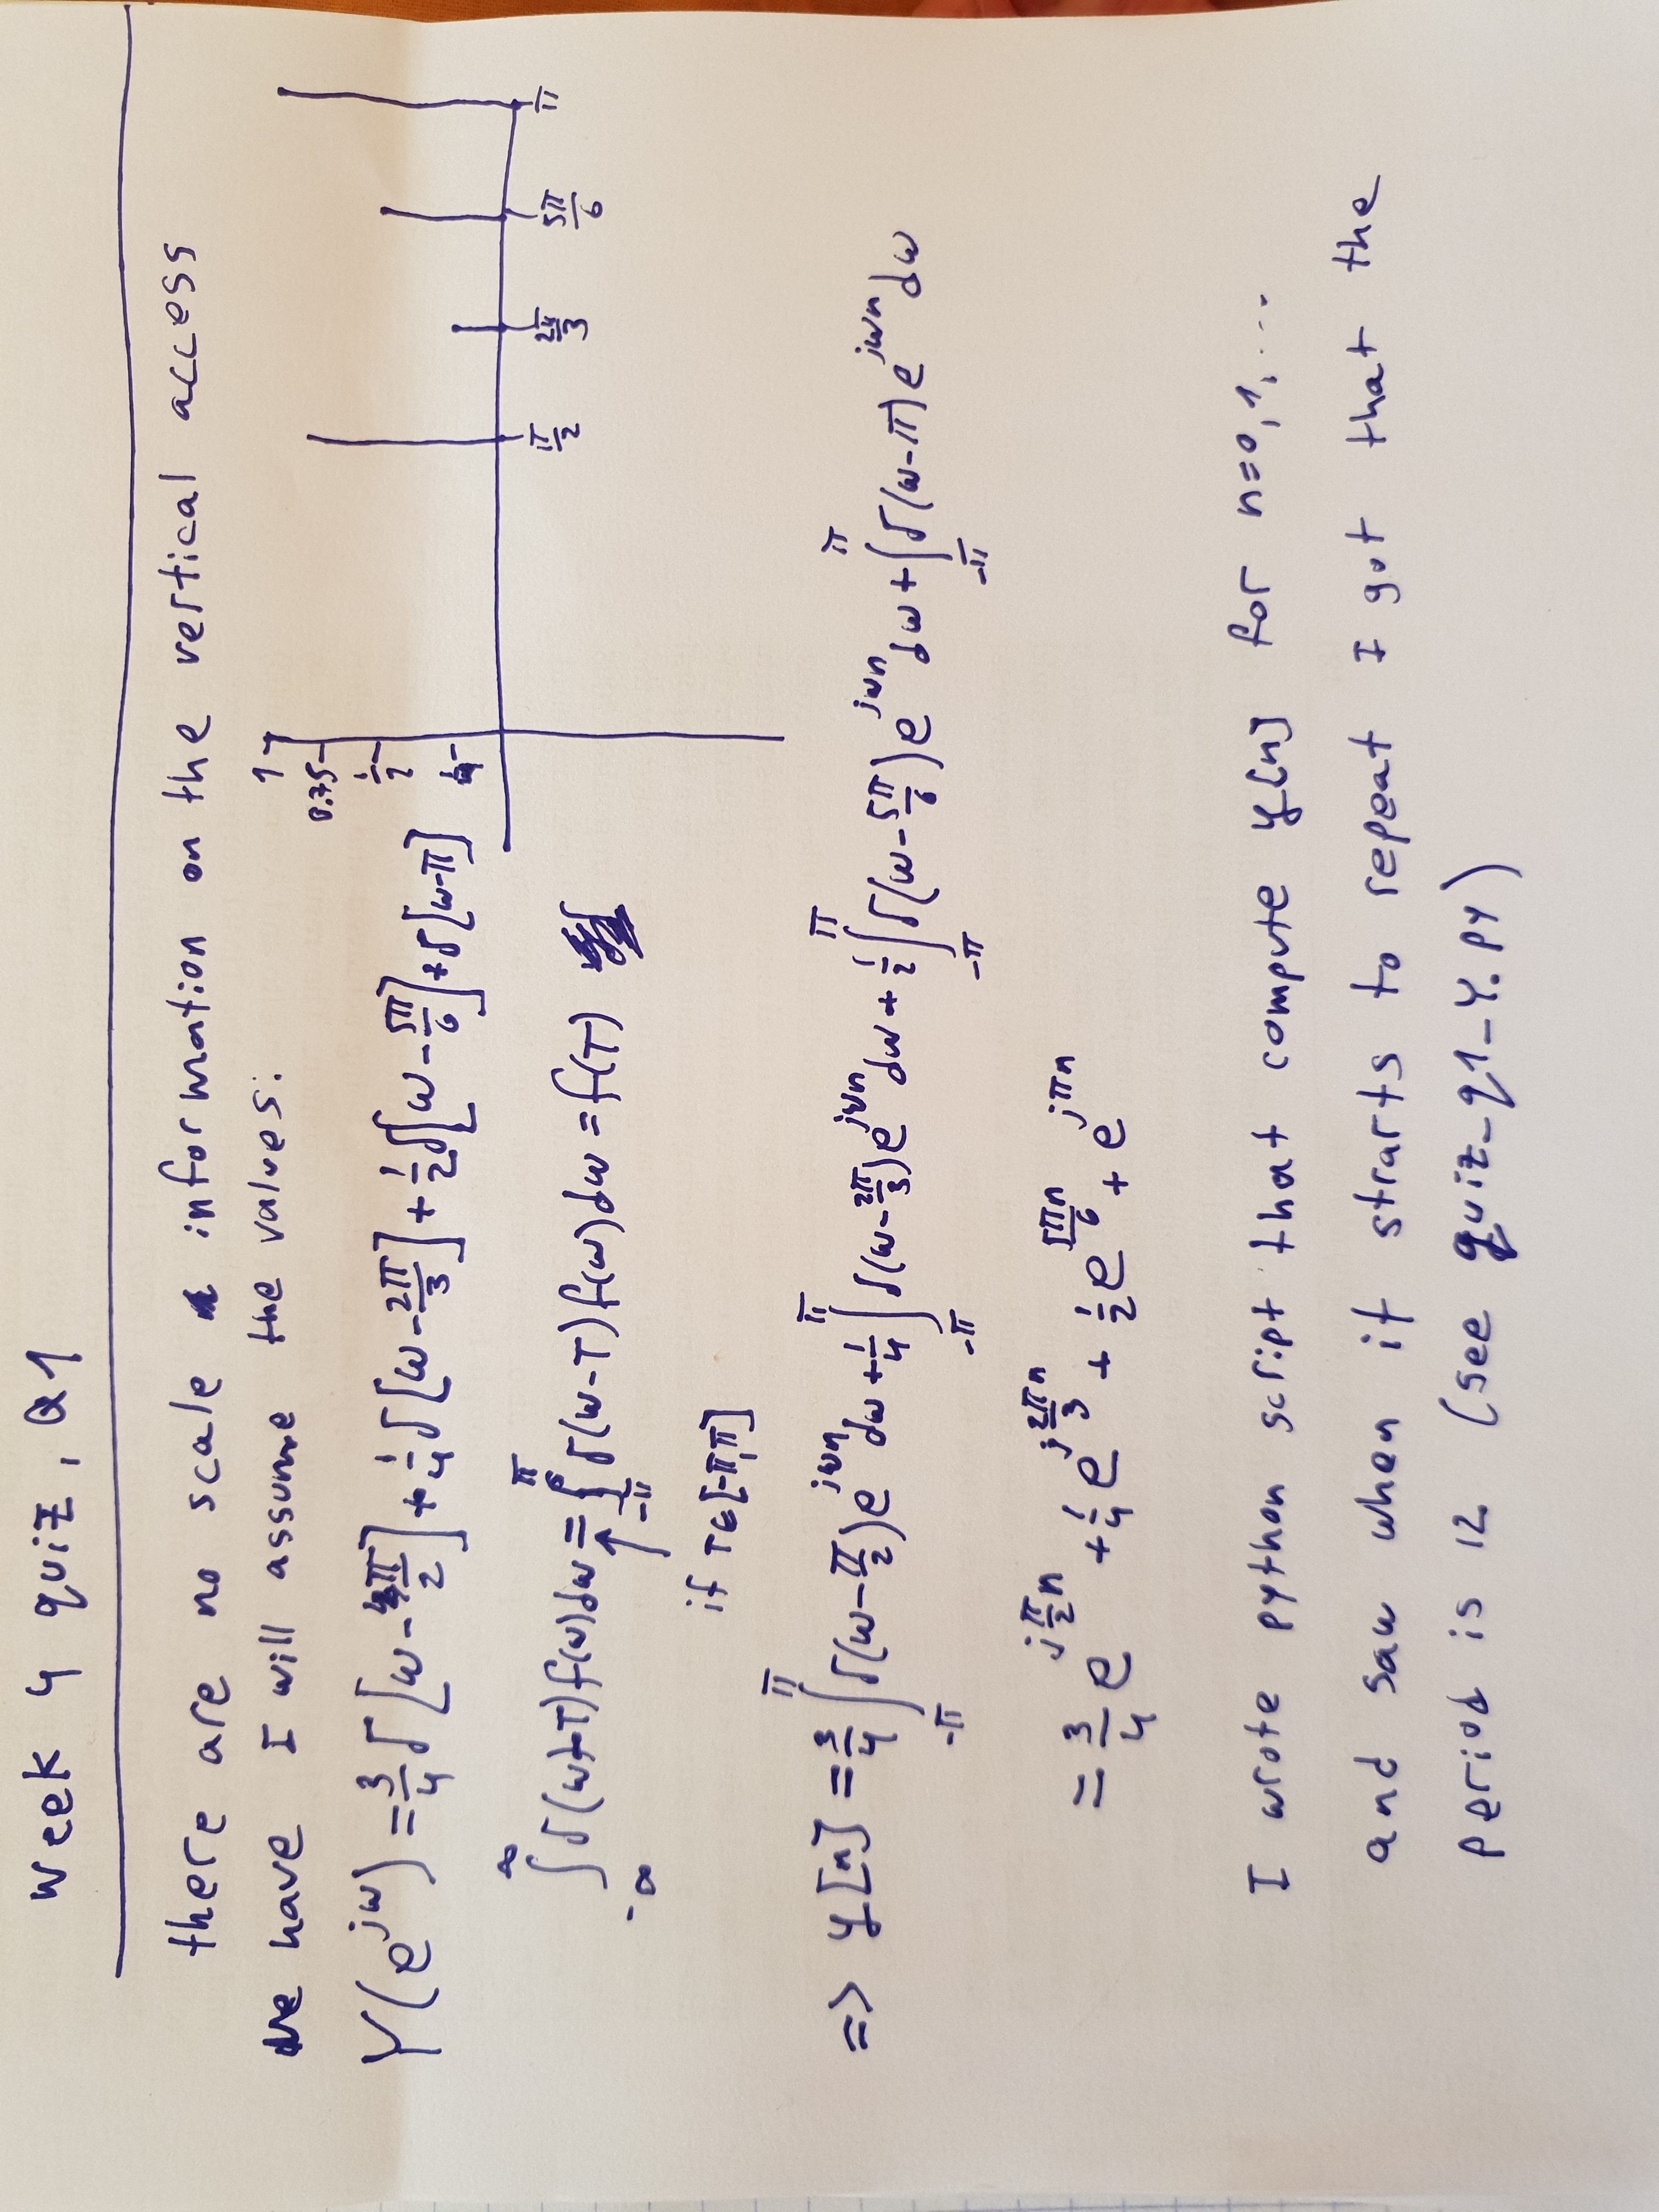 week 4 quiz, Q1
there are no scale information on the vertical access
we have I will assume the values:
1
0.75
1/2
1/4
π/2 2π/3 5π/6 π
Y(e^{jω}) = 3/4 δ[ω - π/2] + 1/4 δ[ω - 2π/3] + 1/2 δ[ω - 5π/6] + δ[ω-π]
∫_{-∞}^{∞} δ(ω-T) f(ω) dω = ∫_{-π}^{π} δ(ω-T) f(ω) dω = f(T)
↑
if T∈[-π,π]
=> y[n] = 3/4 ∫_{-π}^{π} δ(ω-π/2) e^{jωn} dω + 1/4 ∫_{-π}^{π} δ(ω-2π/3) e^{jωn} dω + 1/2 ∫_{-π}^{π} δ(ω-5π/6) e^{jωn} dω + ∫_{-π}^{π} δ(ω-π) e^{jωn} dω
= 3/4 e^{j π/2 n} + 1/4 e^{j 2πn/3} + 1/2 e^{5πn/6} + e^{jπn}
I wrote python script that compute y[n] for n=0,1,...
and saw when it strarts to repeat I got that the
period is 12 (see quiz_q1_Y.py)